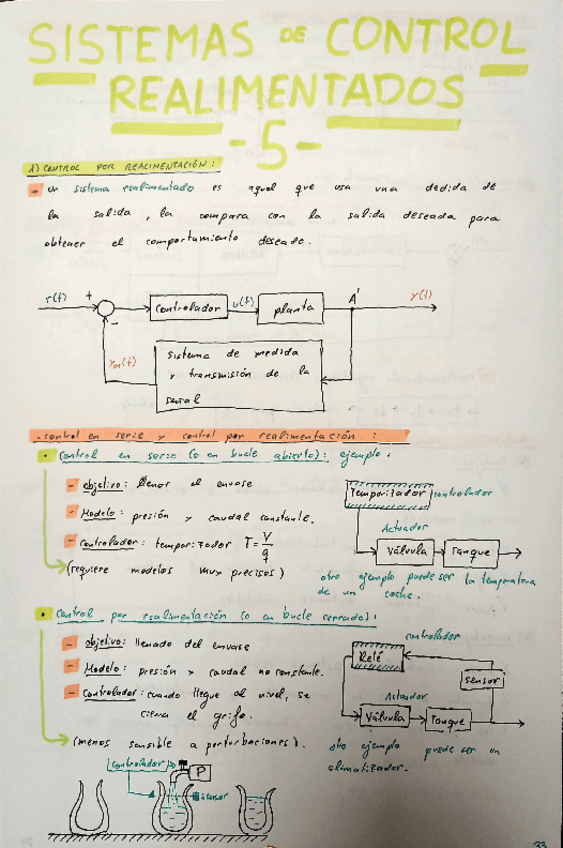 SISTEMAS DE CONTROL
REALIMENTADOS
-5-
1) CONTROL POR REALIMENTACIÓN:
- un sistema realimentado es aquel que usa una dedida de
la salida, la compara con la salida deseada para
obtener el comportamiento deseado.
r(t) + - controlador u(t) planta A' y(t)
ym(t)
sistema de medida
y transmisión de la
señal
- control en serie y control por realimentación:
• Control en serie (o en bucle abierto): ejemplo:
- objetivo: llenar el envase
- Modelo: presión y caudal constante.
- Controlador: temporizador T = V/q
(requiere modelos muy precisos)
Temporizador controlador
Actuador
Válvula Tanque
otro ejemplo puede ser la temperatura
de un coche.
• Control por realimentación (o en bucle cerrado):
- objetivo: llenado del envase
- Modelo: presión y caudal no constante.
- Controlador: cuando llegue al nivel, se
cierra el grifo.
(menos sensible a perturbaciones).
controlador
Relé
sensor
Actuador
Válvula Tanque
otro ejemplo puede ser un
climatizador.
controlador
P
sensor
33